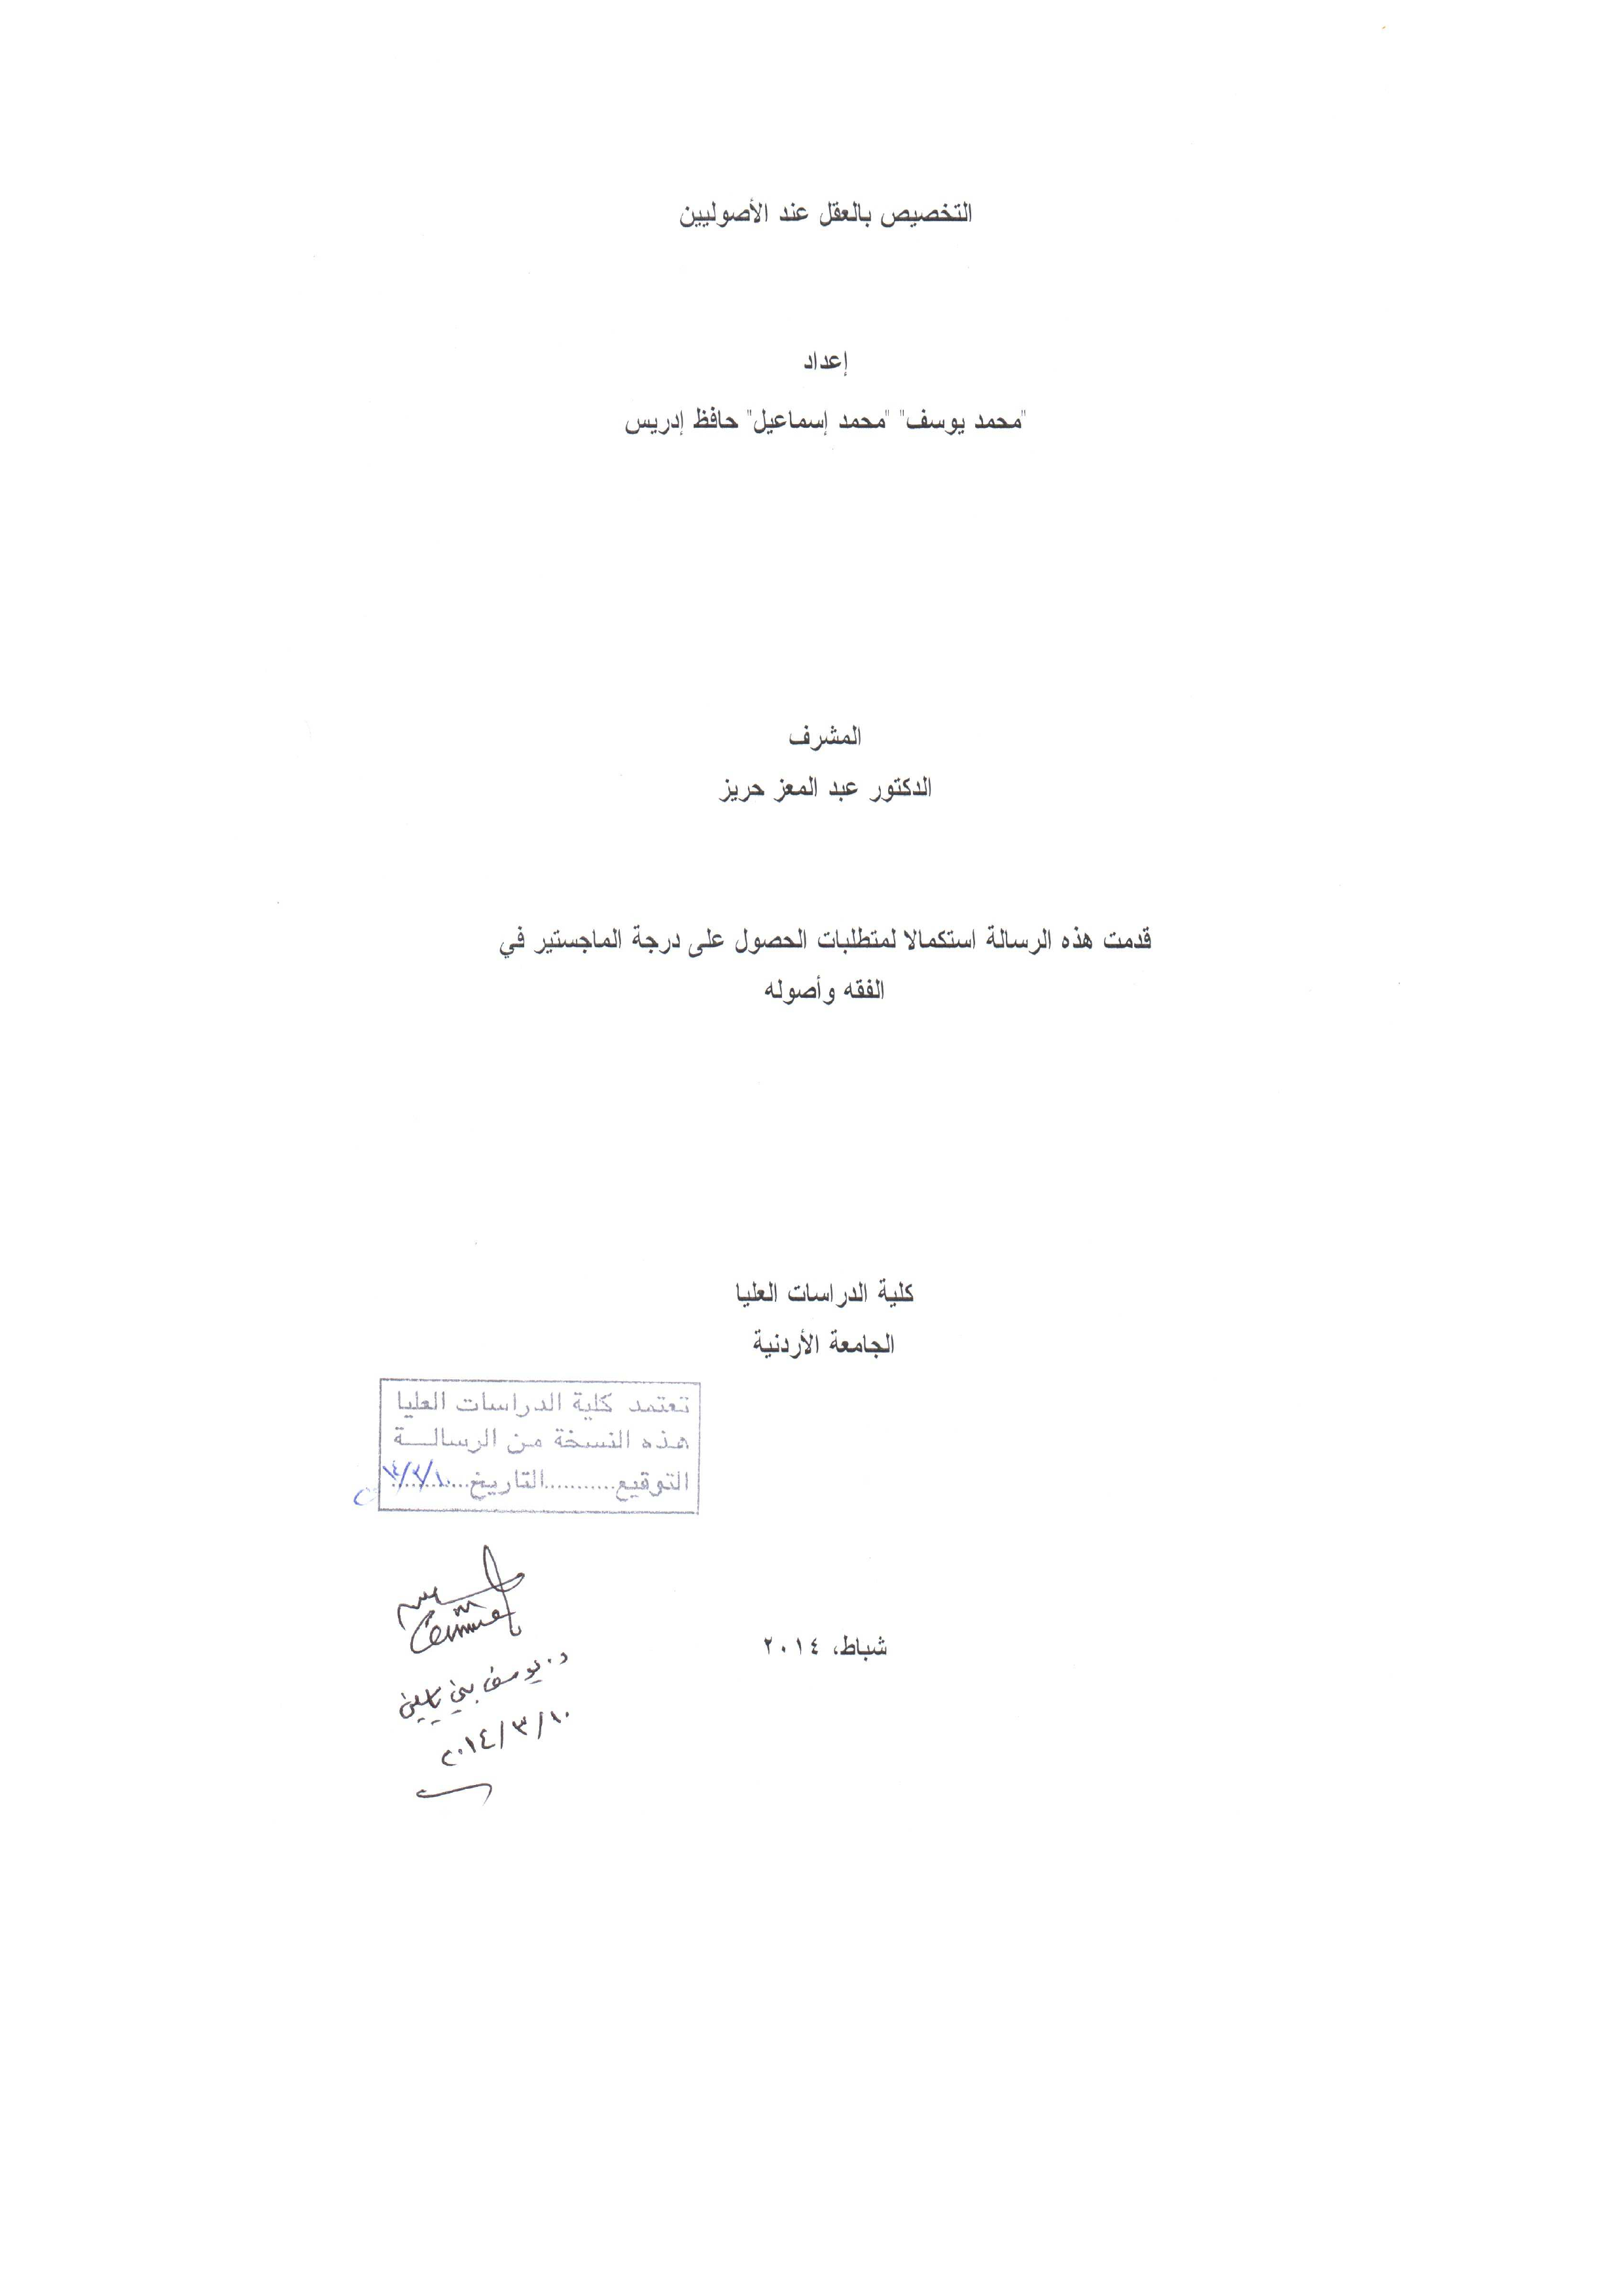 التخصيص بالعقل عند الأصوليين
إعداد
"محمد يوسف" "محمد إسماعيل" حافظ إدريس
المشرف
الدكتور عبد المعز حريز
قدمت هذه الرسالة استكمالا لمتطلبات الحصول على درجة الماجستير في
الفقه وأصوله
كلية الدراسات العليا
الجامعة الأردنية
تعتمد كلية الدراسات العليا
هذه النسخة من الرسالـــة
التوقيع...........التاريخ...١٤/٣/١٠
شباط، ٢٠١٤
د. يوسف بني ياسين
٢٠١٤/٣/١٠